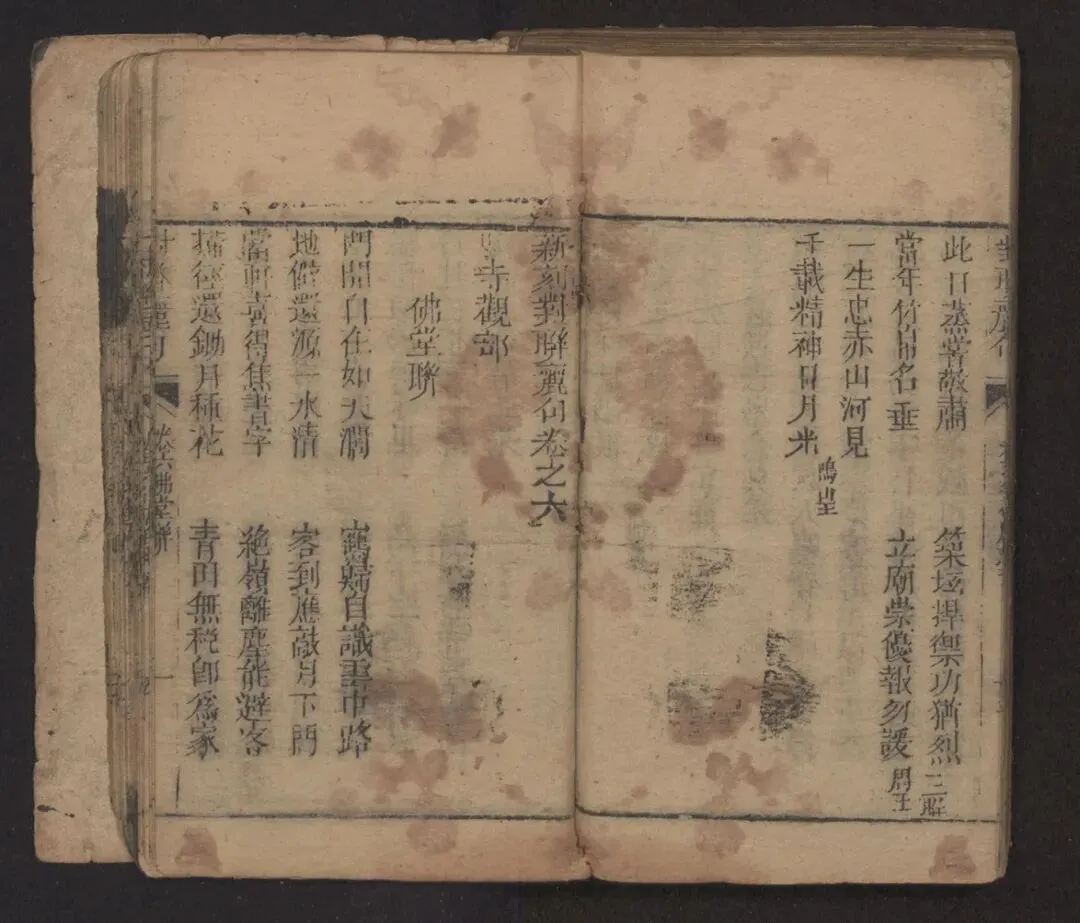 此日蒸嘗敬肅 築垣捍禦功猶烈 三聯
當年竹帛名垂 立廟崇優報勿諼 周王
一生忠赤山河見
千載精神日月光 鳴皇
新刻對聯麗句卷之六
寺觀部
佛堂聯
門開自在如天濶 鶴歸自識雲中路
地僻還源一水清 客到應敲月下門
當軒喜得焦書字 絶嶺離塵能避客
掃徑還鋤月種花 青田無稅即為家
對聯麗句 卷六佛堂聯 一